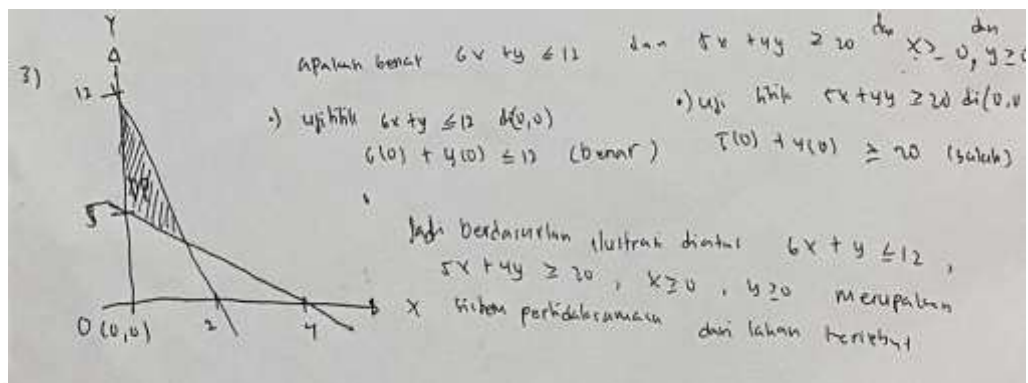 3)
Y
12
5
O (0,0)
2
4
X
apakah benar 6x + y ≤ 12 dan 5x + 4y ≥ 20 dan x ≥ 0, dan y ≥ 0
•) uji titik 6x + y ≤ 12 di(0,0)
6(0) + y(0) ≤ 12 (benar)
•) uji titik 5x + 4y ≥ 20 di(0,0
5(0) + 4(0) ≥ 20 (salah)
Jadi berdasarkan ilustrasi diatas 6x + y ≤ 12,
5x + 4y ≥ 20, x ≥ 0, y ≥ 0 merupakan
sistem pertidaksamaan dari lahan tersebut